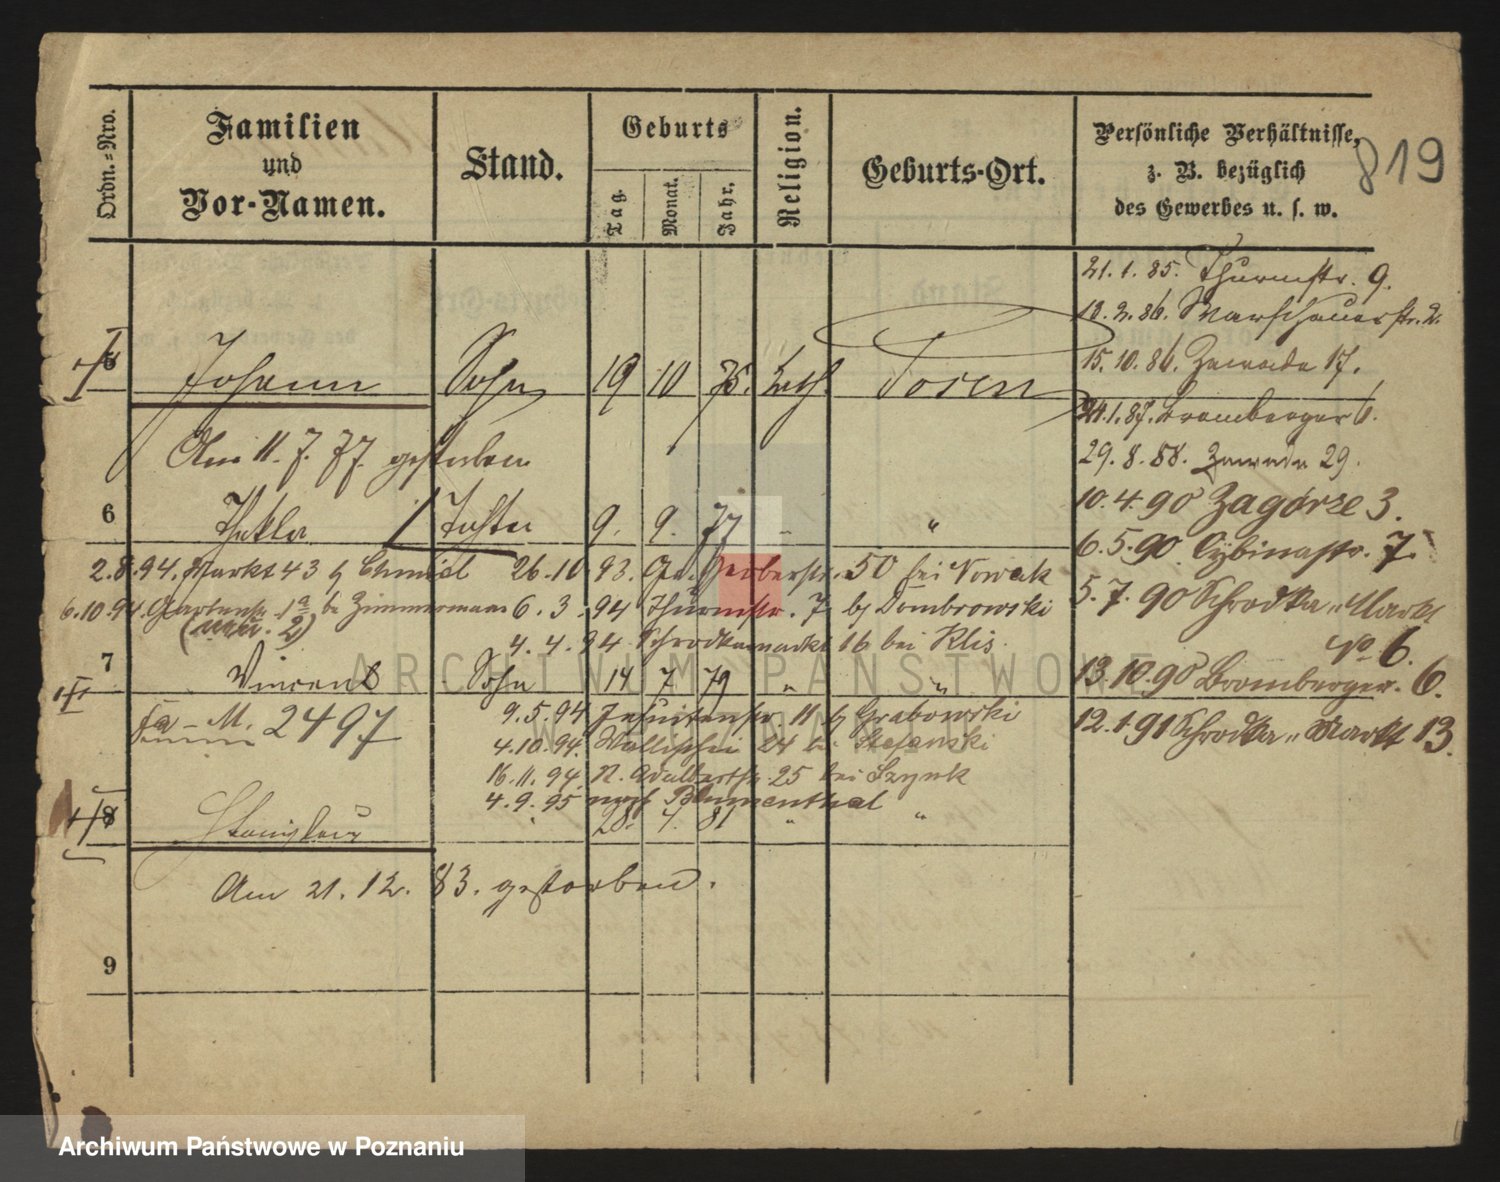 Ordn.=Nro.
Familien
und
Vor-Namen.
Stand.
Geburts
Tag.
Monat.
Jahr.
Religion.
Geburts-Ort.
Persönliche Verhältnisse,
z. B. bezüglich
des Gewerbes u. s. w.
819
21. 1. 85. Thurmstr. 9.
13. 2. 86. Warschauerstr. 2.
15. 10. 86. Zawade 17.
5 Johann Sohn 19 10 75. kath. Posen
24. 1. 87. Bromberger 6.
Am 11. 7. 77. gestorben
29. 8. 88. Zawade 29.
10. 4. 90 Zagórze 3.
6 Thekla Tochter 9. 9. 77 "
6. 5. 90. Cybinastr. 7.
2. 8. 94. Markt 43 b Chmiel
26. 10. 93. Gr. Gerberstr. 50 bei Nowak
5. 7. 90 Schrodka-Markt
No 6.
6. 10. 94. Gartenstr. 1a b Zimmermann
6. 3. 94 Thurmstr. 7 b Dombrowski
4. 4. 94 Schrodkamarkt 16 bei Klis
7 Vincent Sohn 14 7 79 " "
13. 10. 90 Bromberger. 6.
9. 5. 94 Jesuitenstr. 11 b Grabowski
12. 1. 91 Schrodka-Markt 13.
M. 2497
4. 10. 94. Wallischei 24 bei Stefanski
16. 11. 94. N. Adalbertstr 25 bei Szynk
4. 9. 95. nach Blumenthal
8 Stanislaus " 28. 4. 81 " "
Am 21. 12. 83. gestorben.
9
ARCHIWUM PAŃSTWOWE
W POZNANIU
Archiwum Państwowe w Poznaniu